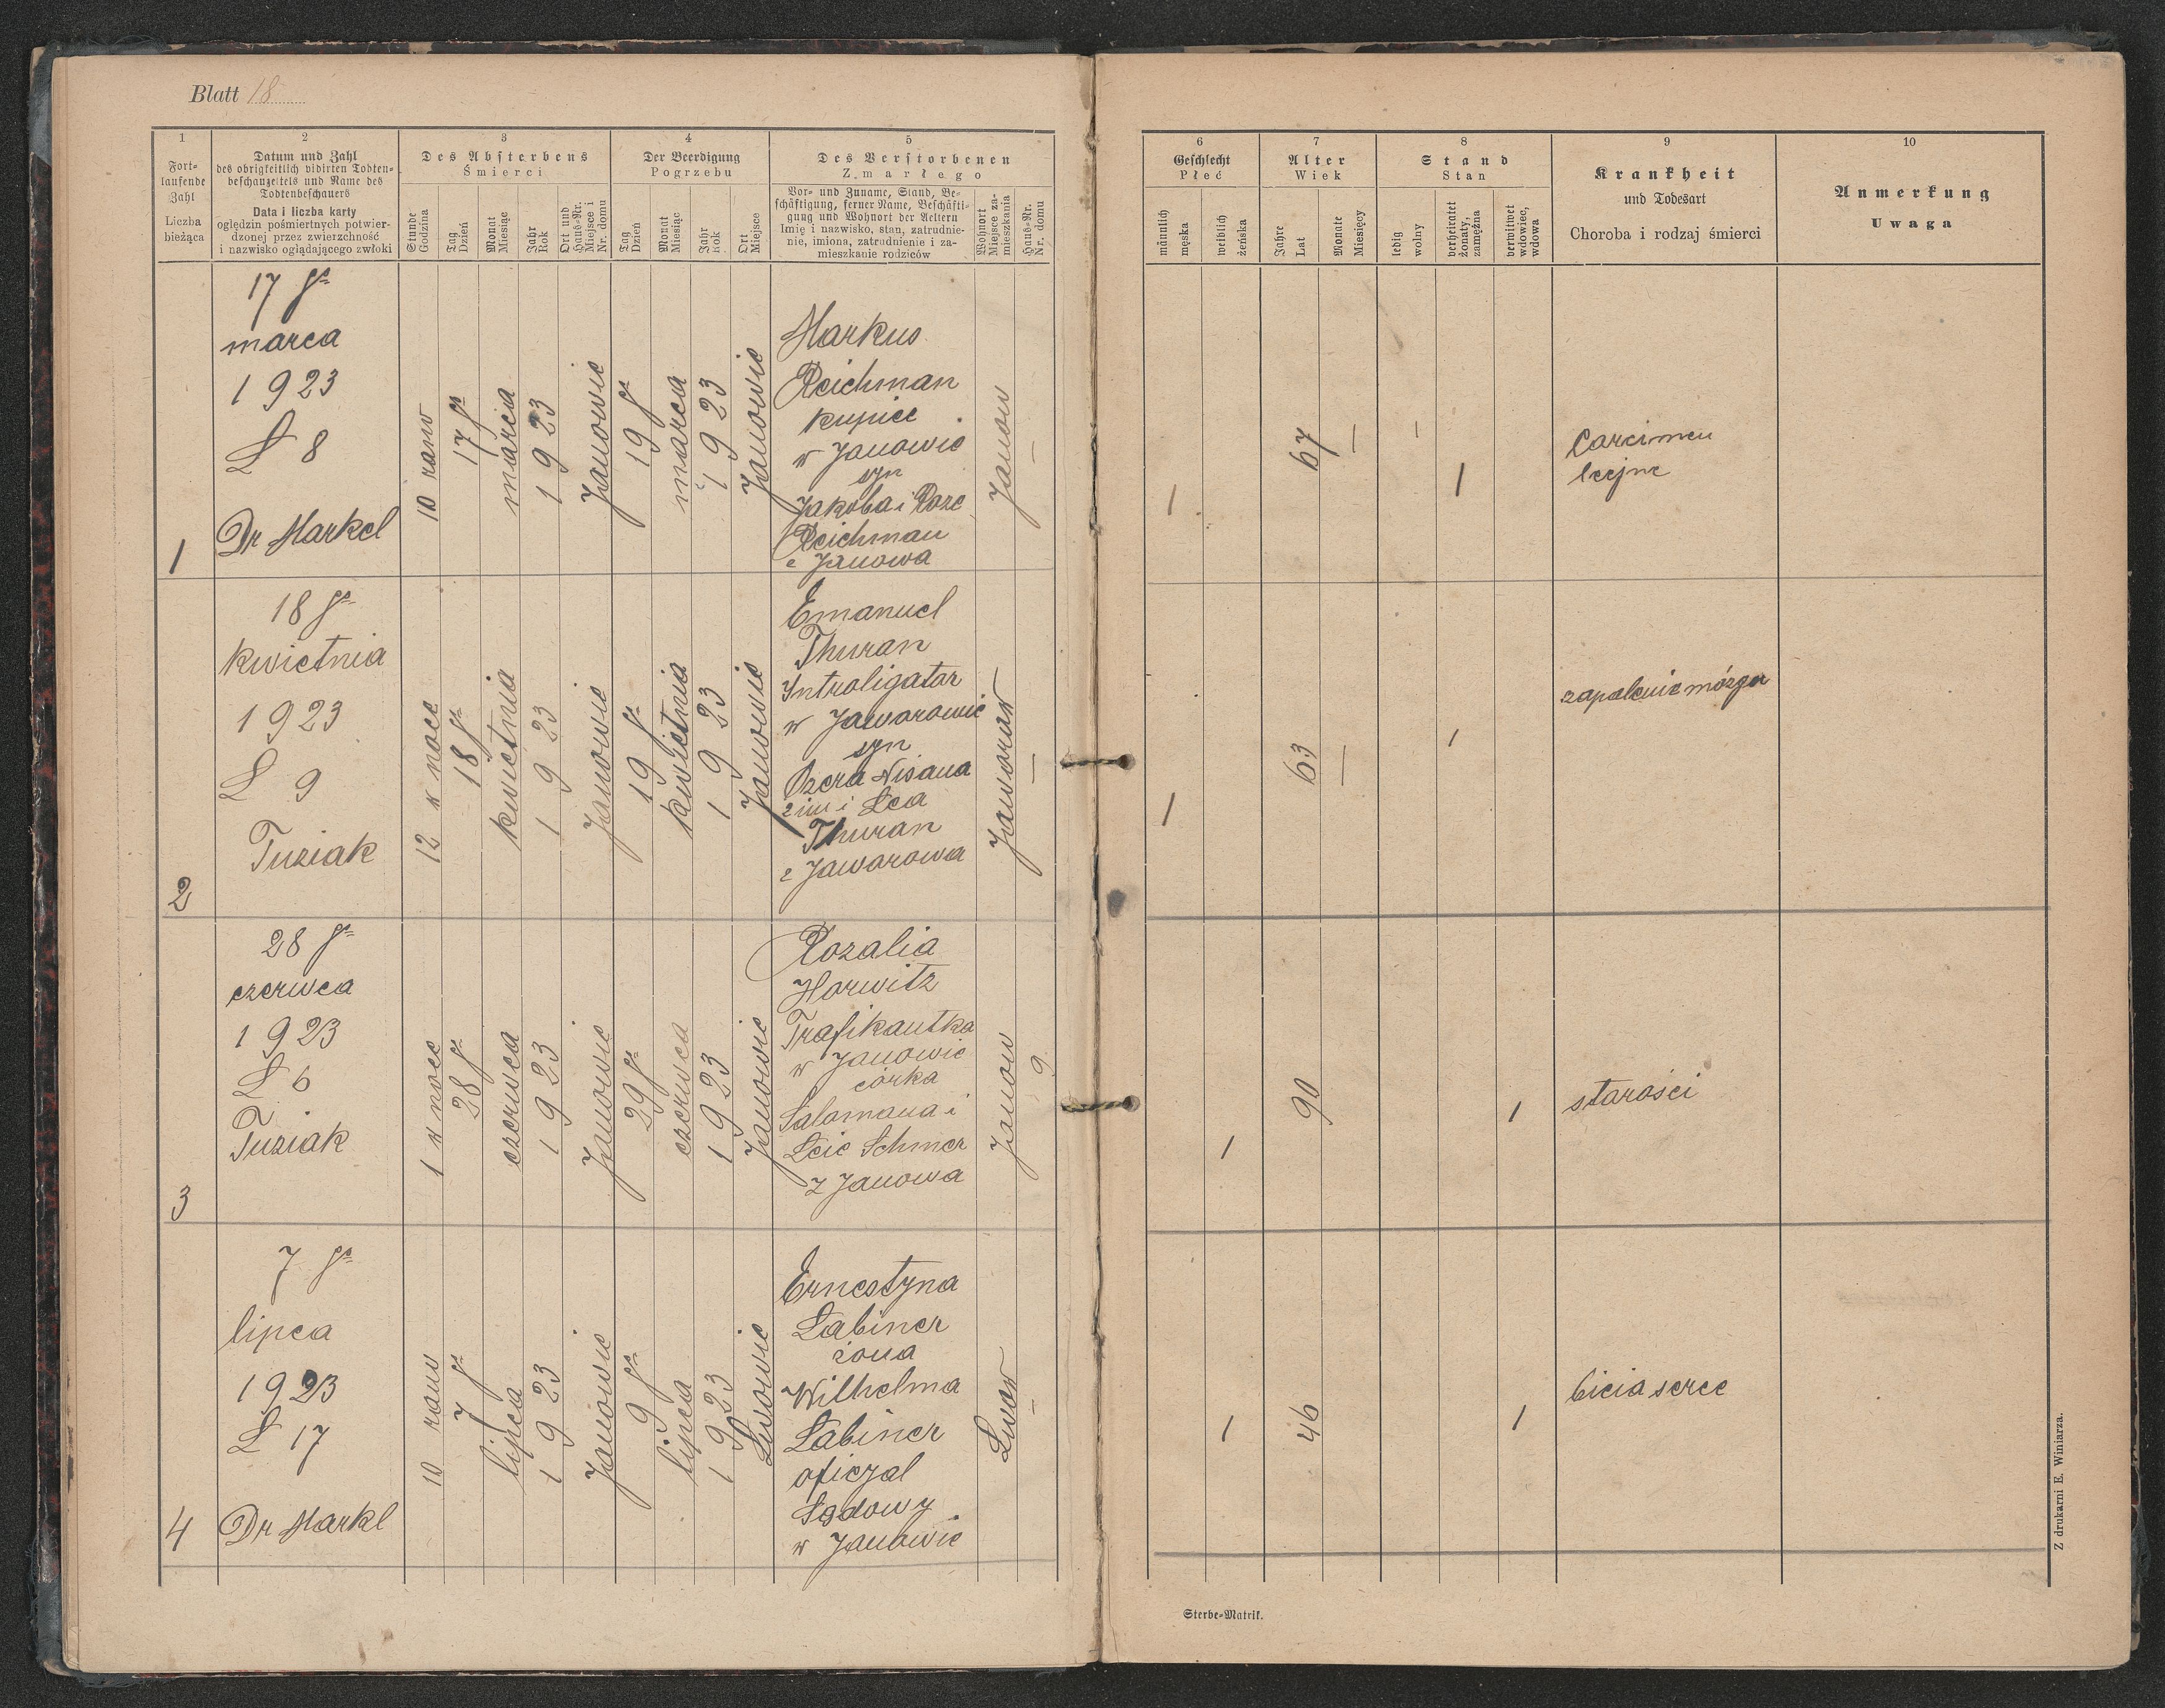 Blatt 18
1
Fort-
laufende
Zahl
Liczba
bieżąca
2
Datum und Zahl
des obrigkeitlich vidirten Todten-
beschauzettels und Name des
Todtenbeschauers
Data i liczba karty
oględzin pośmiertnych potwier-
dzonej przez zwierzchność
i nazwisko oglądającego zwłoki
3
Des Absterbens
Śmierci
Stunde
Godzina
Tag
Dzień
Monat
Miesiąc
Jahr
Rok
Ort und
Haus-Nr.
Miejsce i
Nr. domu
4
Der Beerdigung
Pogrzebu
Tag
Dzień
Monat
Miesiąc
Jahr
Rok
Ort
Miejsce
5
Des Verstorbenen
Zmarłego
Vor- und Zuname, Stand, Be-
schäftigung, ferner Name, Beschäfti-
gung und Wohnort der Aeltern
Imię i nazwisko, stan, zatrudnie-
nie, imiona, zatrudnienie i za-
mieszkanie rodziców
Wohnort
Miejsce za-
mieszkania
Haus-Nr.
Nr. domu
6
Geschlecht
Płeć
männlich
męska
weiblich
żeńska
7
Alter
Wiek
Jahre
Lat
Monate
Miesięcy
8
Stand
Stan
ledig
wolny
verheiratet
żonaty,
zamężna
verwitwet
wdowiec,
wdowa
9
Krankheit
und Todesart
Choroba i rodzaj śmierci
10
Anmerkung
Uwaga
1
17 go
marca
1923
L 8
Dr Markel
10 rano
17 go
marca
1923
Janowie
19 go
marca
1923
Janowie
Markus
Reichman
kupiec
w Janowie
syn
Jakoba i Roze
Reichman
z Janowa
Janow
—
1
67
—
1
Carcimen
2
18 go
kwietnia
1923
L 9
Tuziak
12 w noce
18 go
kwietnia
1923
Janowie
19 go
kwietnia
1923
Janowie
Emanuel
Thuran
Introligator
w Jaworowie
syn
Ozera Nisana
i Lea
Thuran
z Jaworowa
Jaworow
—
1
63
—
1
zapalenie mózgu
3
28 go
czerwca
1923
L 6
Tuziak
1 w noce
28 go
czerwca
1923
Janowie
29 go
czerwca
1923
Janowie
Rozalia
Horwitz
Trafikantka
w Janowie
córka
Salamana i
Leie Schmer
z Janowa
Janow
9
1
90
1
starości
4
7 go
lipca
1923
L 17
Dr Markl
10 rano
7 go
lipca
1923
Janowie
9 go
lipca
1923
Lwowie
Ernestyna
Labiner
żona
Wilhelma
Labiner
oficyal
Sądowy
w Janowie
Lwow
—
1
46
1
bicia serce
Sterbe-Matrik.
Z drukarni E. Winiarza.